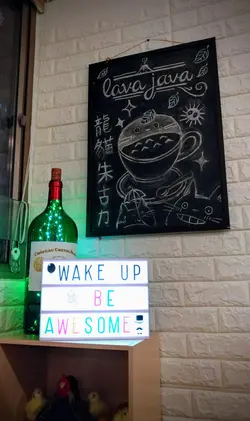 lava java
龍貓朱古力
WAKE UP
BE
AWESOME